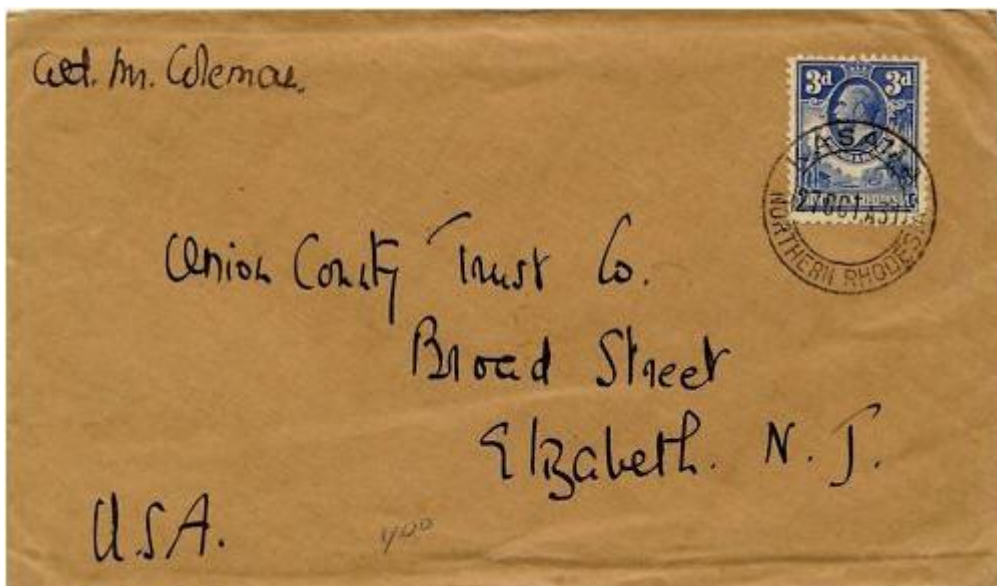 att. Mr. Coleman.
3d 3d
KASAMA
27 OCT
NORTHERN RHODESIA
Union County Trust Co.
Broad Street
Elizabeth. N. J.
U.S.A.